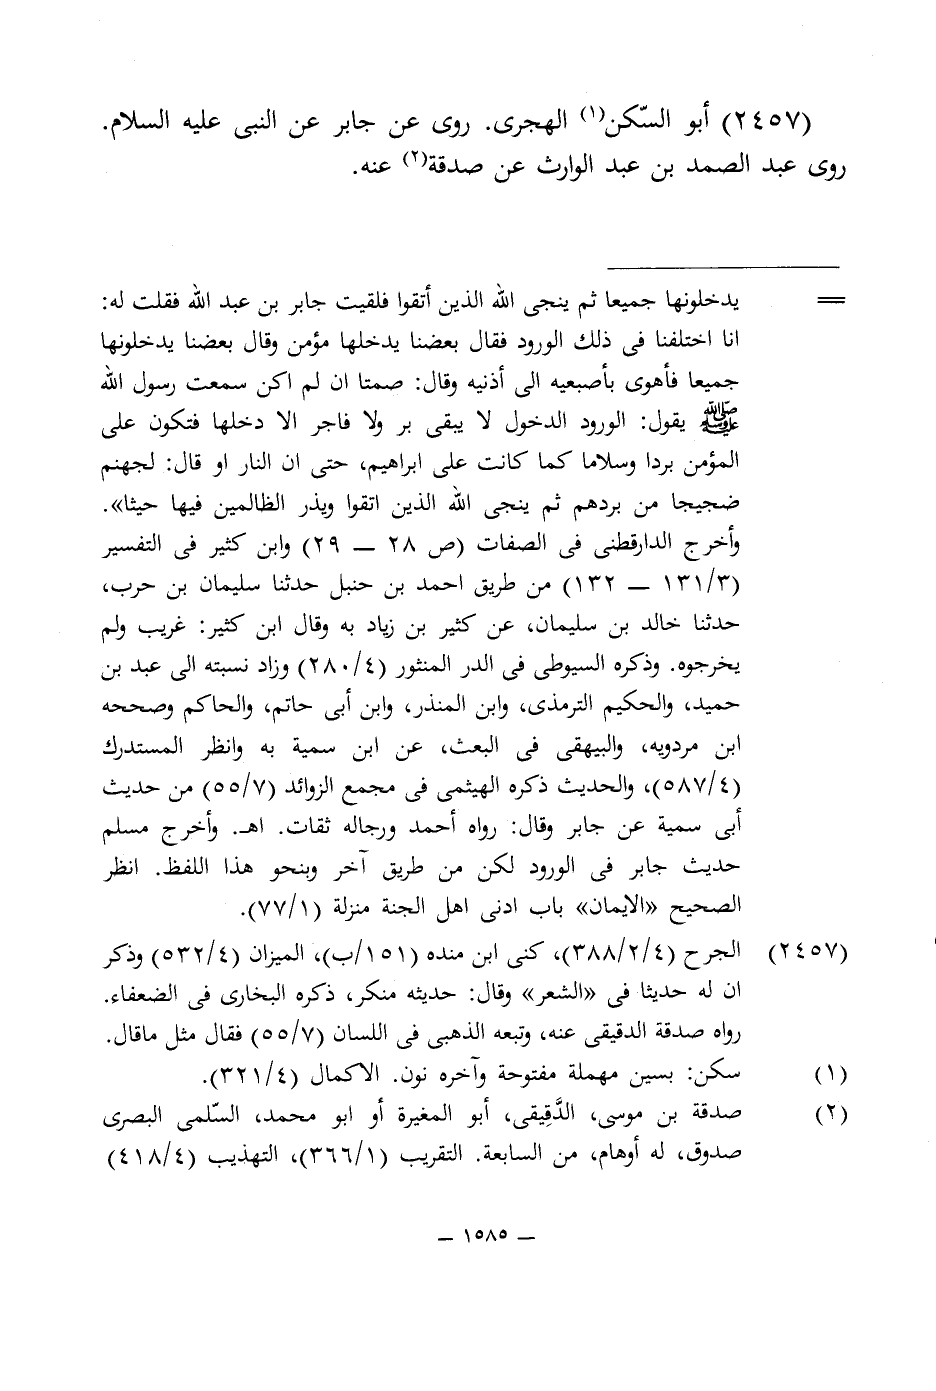 (٢٤٥٧) أبو السّكن(١) الهجرى. روى عن جابر عن النبى عليه السلام.
روى عبد الصمد بن عبد الوارث عن صدقة(٢) عنه.
= يدخلونها جميعا ثم ينجى الله الذين أتقوا فلقيت جابر بن عبد الله فقلت له:
انا اختلفنا فى ذلك الورود فقال بعضنا يدخلها مؤمن وقال بعضنا يدخلونها
جميعا فأهوى بأصبعيه الى أذنيه وقال: صمتا ان لم اكن سمعت رسول الله
ﷺ يقول: الورود الدخول لا يبقى بر ولا فاجر الا دخلها فتكون على
المؤمن بردا وسلاما كما كانت على ابراهيم، حتى ان النار او قال: لجهنم
ضجيجا من بردهم ثم ينجى الله الذين اتقوا ويذر الظالمين فيها حيثا».
وأخرج الدارقطنى فى الصفات (ص ٢٨ — ٢٩) وابن كثير فى التفسير
(١٣١/٣ — ١٣٢) من طريق احمد بن حنبل حدثنا سليمان بن حرب،
حدثنا خالد بن سليمان، عن كثير بن زياد به وقال ابن كثير: غريب ولم
يخرجوه. وذكره السيوطى فى الدر المنثور (٢٨٠/٤) وزاد نسبته الى عبد بن
حميد، والحكيم الترمذى، وابن المنذر، وابن أبى حاتم، والحاكم وصححه
ابن مردويه، والبيهقى فى البعث، عن ابن سمية به وانظر المستدرك
(٥٨٧/٤)، والحديث ذكره الهيثمى فى مجمع الزوائد (٥٥/٧) من حديث
أبى سمية عن جابر وقال: رواه أحمد ورجاله ثقات. اهـ. وأخرج مسلم
حديث جابر فى الورود لكن من طريق آخر وبنحو هذا اللفظ. انظر
الصحيح «الايمان» باب ادنى اهل الجنة منزلة (٧٧/١).
(٢٤٥٧) الجرح (٣٨٨/٢/٤)، كنى ابن منده (١٥١/ب)، الميزان (٥٣٢/٤) وذكر
ان له حديثا فى «الشعر» وقال: حديثه منكر، ذكره البخارى فى الضعفاء.
رواه صدقة الدقيقى عنه، وتبعه الذهبى فى اللسان (٥٥/٧) فقال مثل ماقال.
(١) سكن: بسين مهملة مفتوحة وآخره نون. الاكمال (٣٢١/٤).
(٢) صدقة بن موسى، الدَّقِيقى، أبو المغيرة أو ابو محمد، السّلمى البصرى
صدوق، له أوهام، من السابعة. التقريب (٣٦٦/١)، التهذيب (٤١٨/٤)
— ١٥٨٥ —